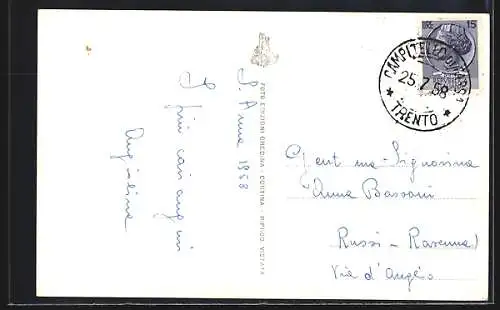 S. Anna 1958
I più cari auguri
Angelina
FOTO EDIZIONI GHEDINA - CORTINA - RIPROD. VIETATA
15
CAMPITELLO DI FASSA
25.7.58
* TRENTO *
Gent ma Signorina
Anna Bassoni
Russi - Ravenna
Via d'Angeli